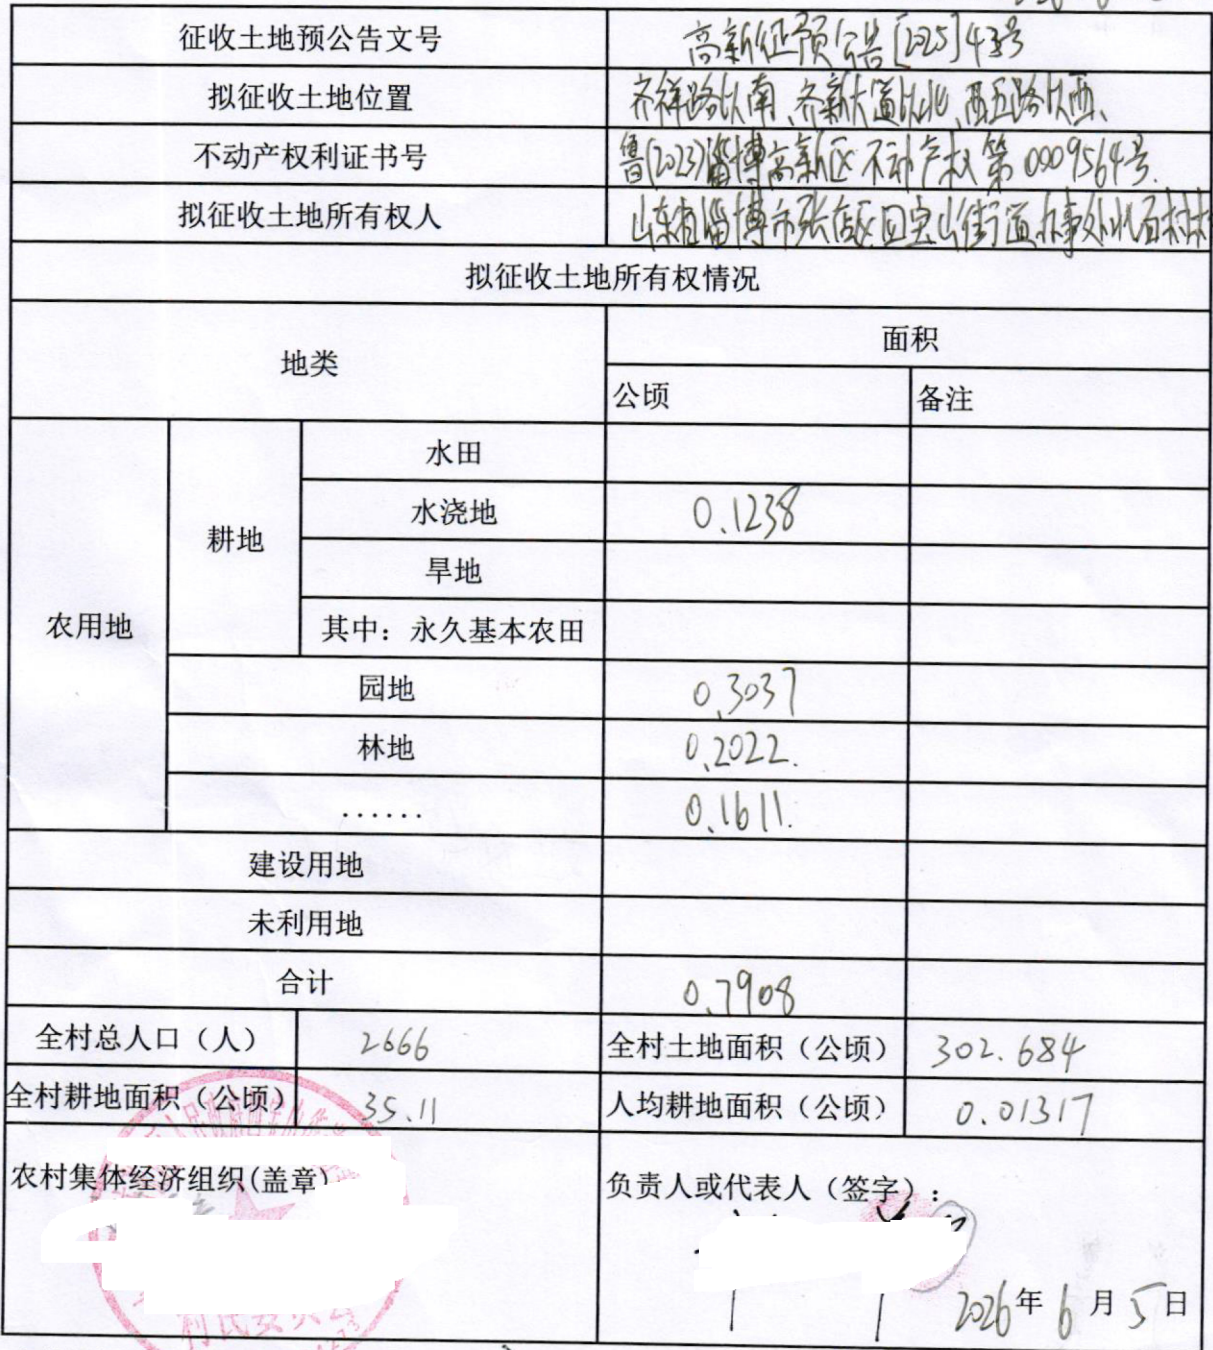 征收土地预公告文号 高新征预公告[2025]43号
拟征收土地位置 齐祥路以南、齐新大道以北、西五路以西、
不动产权利证书号 鲁(2023)淄博高新区不动产权第0009564号.
拟征收土地所有权人 山东省淄博市张店区四宝山街道办事处北石村村
拟征收土地所有权情况
地类 面积
公顷 备注
农用地 耕地 水田
水浇地 0.1238
旱地
其中：永久基本农田
园地 0.3037
林地 0.2022.
…… 0.1611.
建设用地
未利用地
合计 0.7908
全村总人口（人） 2666 全村土地面积（公顷） 302.684
全村耕地面积（公顷） 35.11 人均耕地面积（公顷） 0.01317
农村集体经济组织(盖章) 负责人或代表人（签字）:
村民委员会
2026年6月5日